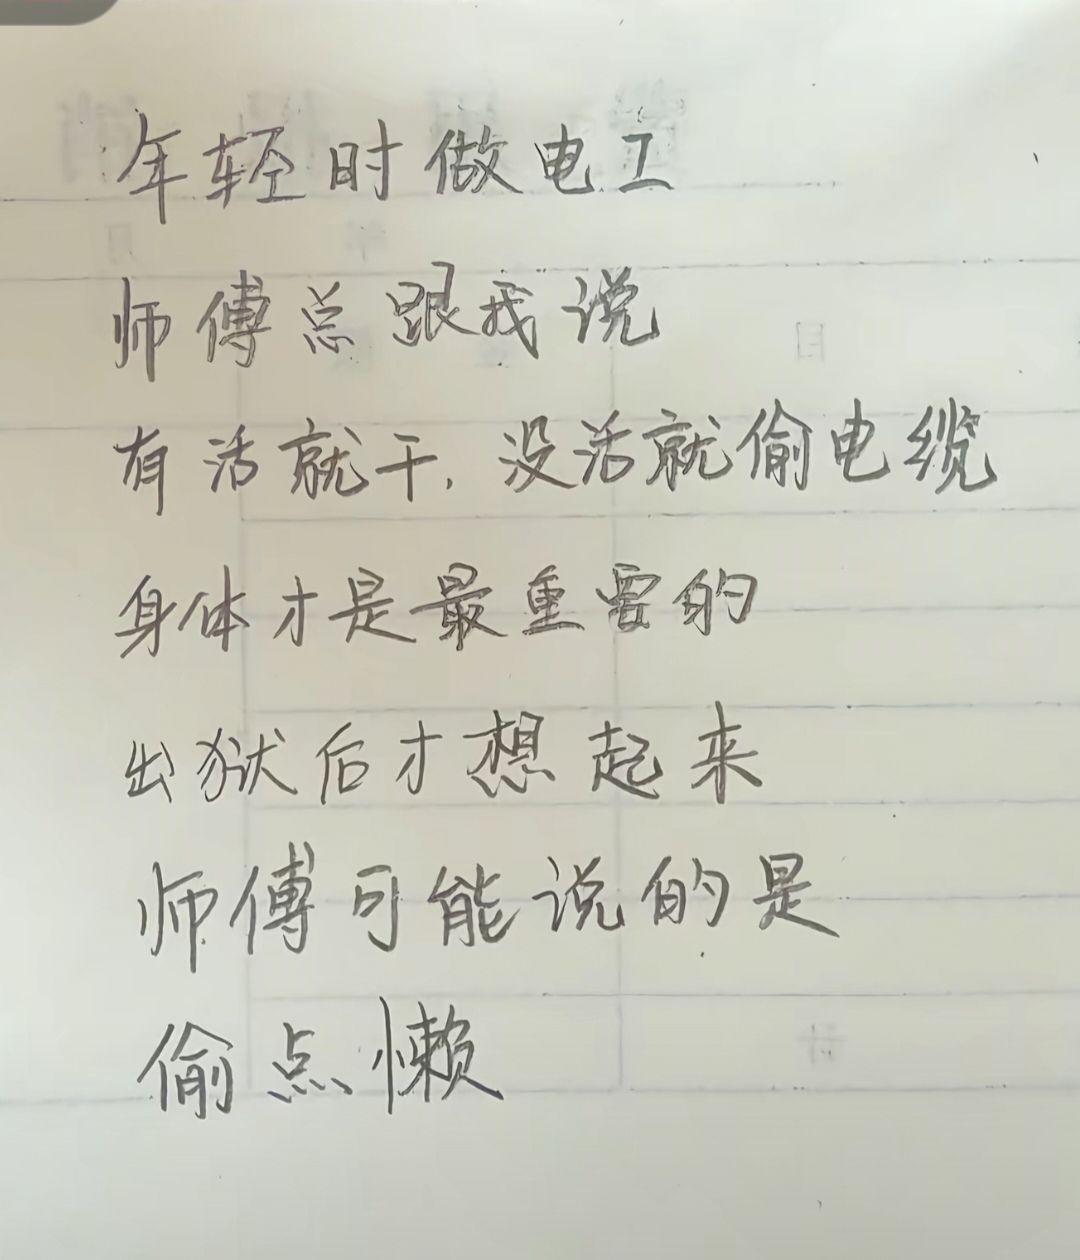 年轻时做电工
师傅总跟我说
有活就干,没活就偷电缆
身体才是最重要的
出狱后才想起来
师傅可能说的是
偷点懒